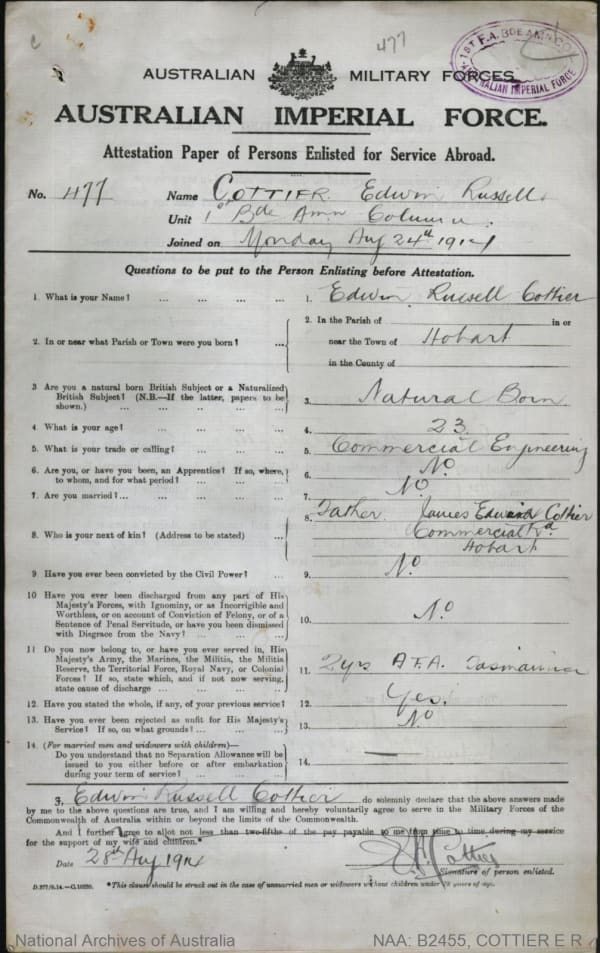 477
1ST F.A. BDE AMN COL
AUSTRALIAN IMPERIAL FORCE
AUSTRALIAN MILITARY FORCES
AUSTRALIAN IMPERIAL FORCE.
Attestation Paper of Persons Enlisted for Service Abroad.
No. 477 Name COTTIER Edwin Russell
Unit 1st Bde Amn Column.
Joined on Monday Aug 24th 1914
Questions to be put to the Person Enlisting before Attestation.
1. What is your Name? ... ... ... ... 1. Edwin Russell Cottier
2. In or near what Parish or Town were you born? ... 2. In the Parish of in or
near the Town of Hobart
in the County of
3 Are you a natural born British Subject or a Naturalized
British Subject? (N.B.—If the latter, papers to be
shown.) ... ... ... ... 3. Natural Born
4. What is your age? ... ... ... ... 4. 23
5. What is your trade or calling? ... ... ... 5. Commercial Engineering
6. Are you, or have you been, an Apprentice? If so, where,
to whom, and for what period? ... ... ... 6. No
7. Are you married?... ... ... ... 7. No
8. Who is your next of kin? (Address to be stated) ... 8. Father James Edward Cottier
Commercial Rd.
Hobart
9 Have you ever been convicted by the Civil Power? ... 9. No
10 Have you ever been discharged from any part of His
Majesty's Forces, with Ignominy, or as Incorrigible and
Worthless, or on account of Conviction of Felony, or of a
Sentence of Penal Servitude, or have you been dismissed
with Disgrace from the Navy? ... ... ... 10. No
11 Do you now belong to, or have you ever served in, His
Majesty's Army, the Marines, the Militia, the Militia
Reserve, the Territorial Force, Royal Navy, or Colonial
Forces? If so, state which, and if not now serving,
state cause of discharge ... ... ... ... 11. 2yrs A.F.A. Tasmania
12. Have you stated the whole, if any, of your previous service? 12. Yes.
13. Have you ever been rejected as unfit for His Majesty's
Service? If so, on what grounds? ... ... ... 13. No
14. (For married men and widowers with children)—
Do you understand that no Separation Allowance will be
issued to you either before or after embarkation
during your term of service? ... ... ... 14. —
I, Edwin Russell Cottier do solemnly declare that the above answers made
by me to the above questions are true, and I am willing and hereby voluntarily agree to serve in the Military Forces of the
Commonwealth of Australia within or beyond the limits of the Commonwealth.
And I further agree to allot not less than two-fifths of the pay payable to me from time to time during my service
for the support of my wife and children.*
Date 28th Aug 1914 E R Cottier
Signature of person enlisted.
D.377/9.14.—C.10820. *This clause should be struck out in the case of unmarried men or widowers without children under 18 years of age.
National Archives of Australia NAA: B2455, COTTIER E R